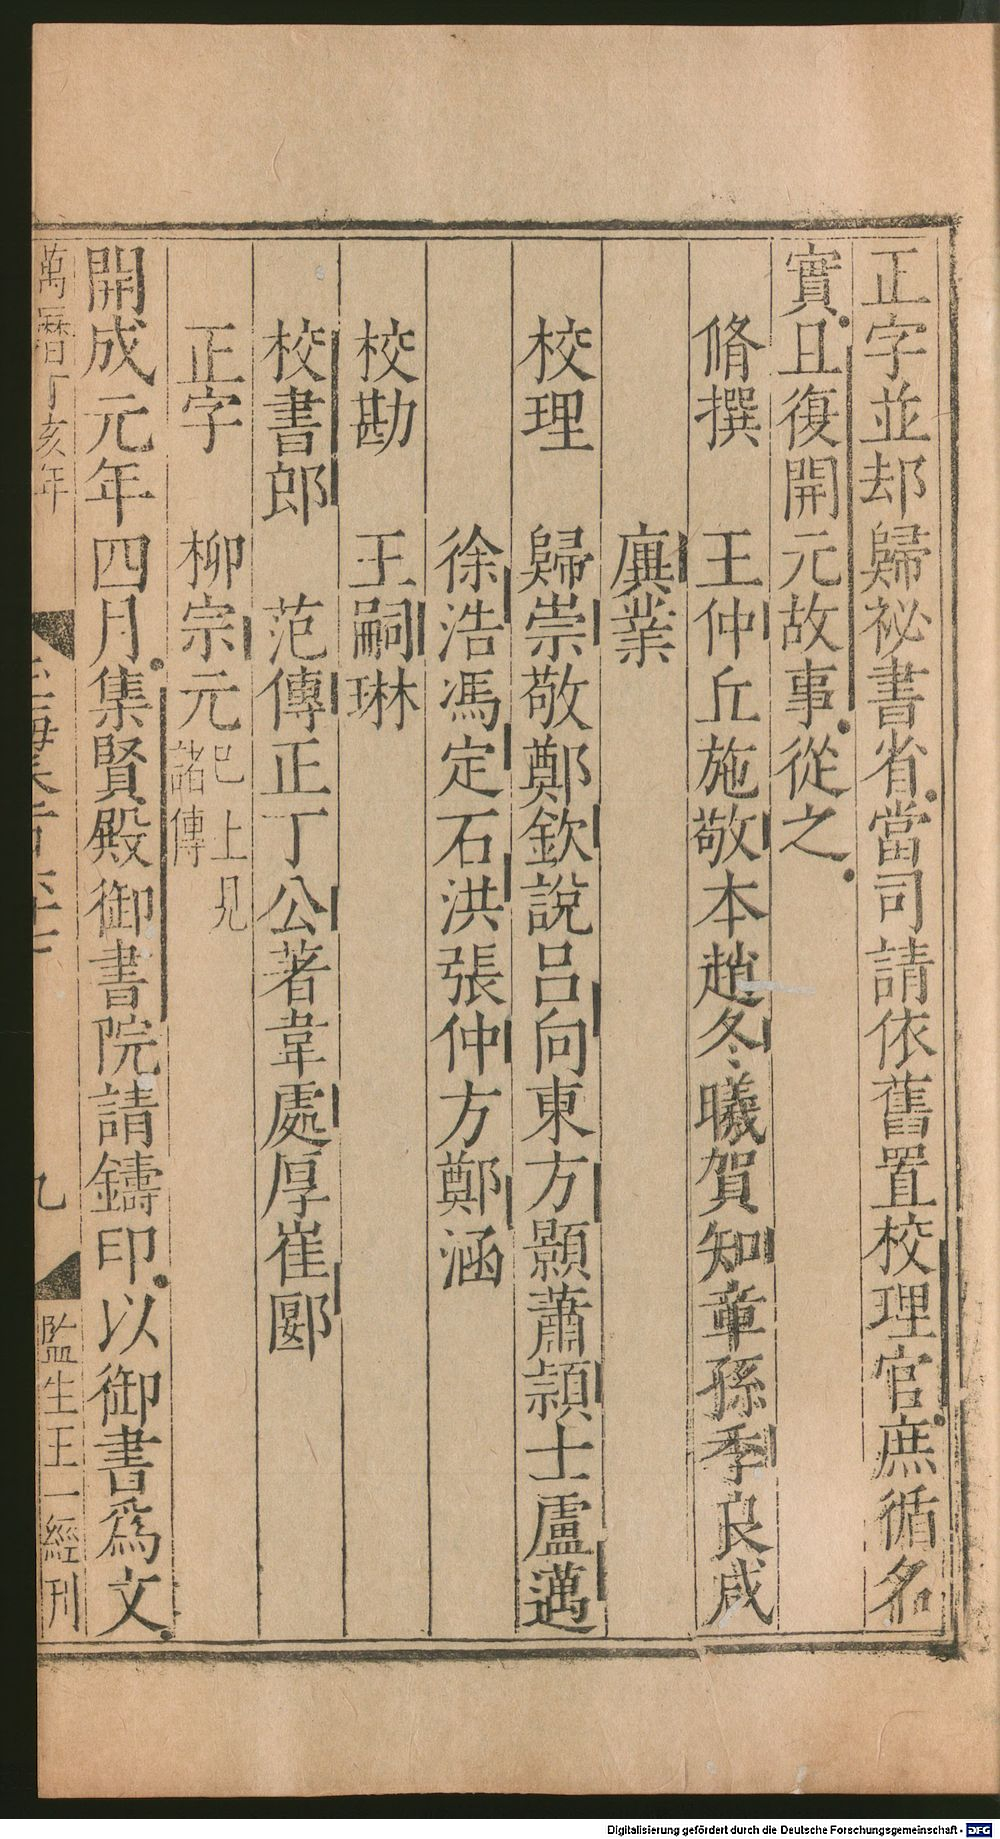 正字並却歸祕書省當司請依舊置校理官庶循名
實且復開元故事從之
脩撰 王仲丘施敬本趙冬曦賀知章孫季良咸
廙業
校理 歸崇敬鄭欽說呂向東方顥蕭頴士盧邁
徐浩馮定石洪張仲方鄭涵
校勘 王嗣琳
校書郎 范傳正丁公著韋處厚崔郾
正字 柳宗元已上見
諸傳
開成元年四月集賢殿御書院請鑄印以御書爲文
萬曆丁亥年 九 監生王一經刊
Digitalisierung gefördert durch die Deutsche Forschungsgemeinschaft - DFG